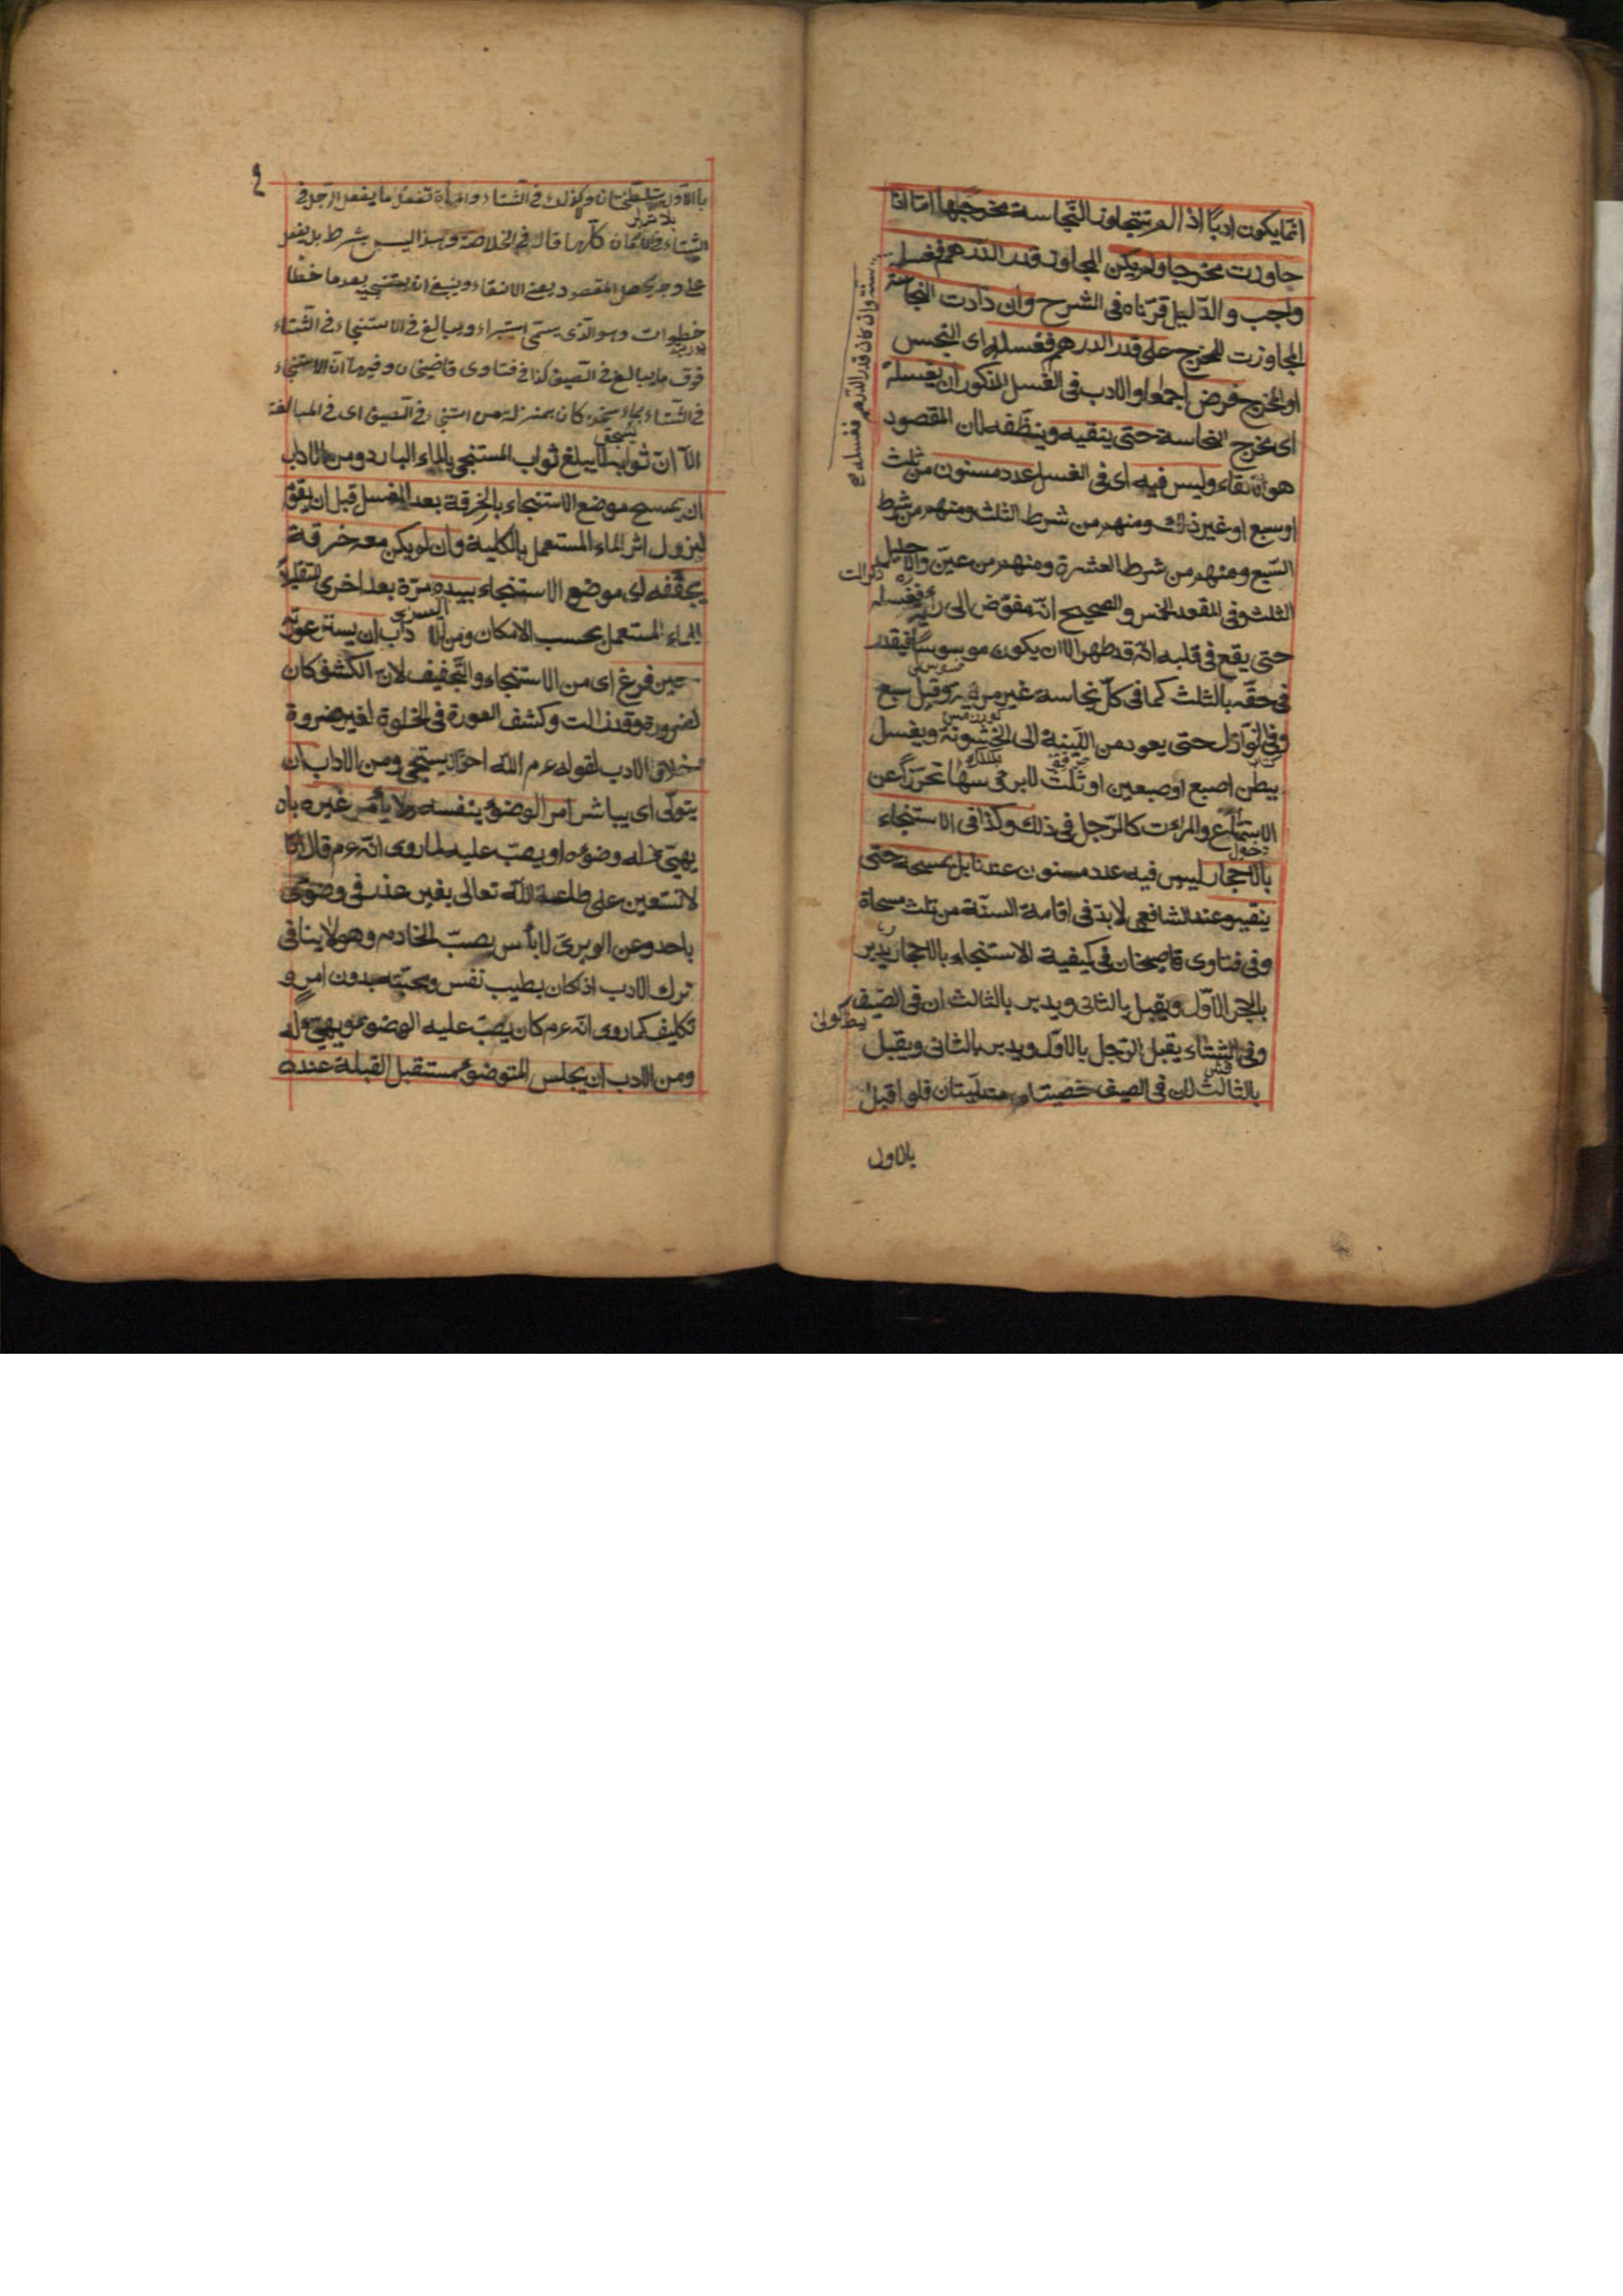 انمّا يكون ادبًا اذا لم تتجاوز النّجاسة مخرجها امّا اذا
جاوزت مخرجها ولم يكن المجاوز قدر الدّرهم فغسله
سنّة وان كان قدر الدّرهم فغسله
واجب والدّليل قرّناه فى الشرح وان زادت النجاسة
المجاوزت المخرج على قدر الدرهم فغسله اى النجس
او المخرج فرض اجماعا والادب فى الغسل المذكور ان يغسله
اى مخرج النجاسة حتى ينقيه وينظّفه لان المقصود
هو الانقاء وليس فيه اى فى الغسل عدد مسنون من ثلث
او سبع او غير ذلك ومنهم من شرط الثلث ومنهم من شرط
السّبع ومنهم من شرط العشرة ومنهم من عيّن والاحليل
الثلث وفى المقعد الخمس والصحيح انّه مفوّض الى رأيه فيغسله
حتى يقع فى قلبه انّه قد طهر الا ان يكون موسوسًا فيقدر
فى حقّه بالثلث كما فى كلّ نجاسة غير مرئية وقيل سبع
وفى النّوازل حتى يعود من اللّينية الى الخشونة ويغسل
ببطن اصبع او صبعين او ثلث لابرؤسها تحرّزا عن
الاستمتاع والمرءت كالرّجل فى ذلك وكذا فى الاستنجاء
بالاحجار ليس فيه عدد مسنون عندنا بل يمسحه حتى
ينقيه وعند الشافعى لا بدّ فى اقامة السنّة من ثلث مسحاة
وفى فتاوى قاضيخان فى كيفية الاستنجاء بالاحجار يدبر
بالحجر الاوّل ويقبل بالثانى ويدبر بالثالث ان فى الصّيف
وفى الشتاء يقبل الرّجل بالاوّل ويدبر بالثانى ويقبل
بالثالث لان فى الصيف خصيتاه متدلّيتان فلو اقبل
بالاول
بالاوّل يتلطّخان ولا كذلك فى الشتاء والمرأة تفعل ما يفعل الرّجل فى
الشتاء فى الازمان كلّها قال فى الخلاصة وهذا ليس بشرط بل يفعل
على وجه يحصل المقصود يعنى الانقاء وينبغى ان يستنجى بعد ما خطا
خطوات وهو الّذى يسمّى استبراء ويبالغ فى الاستنجاء فى الشّتاء
فوق ما يبالغ فى الصّيف كذا فى فتاوى قاضيخان وفيها انّ الاستنجاء
فى الشّتاء بماء سخن كان بمنزلة من استنجاء فى الصّيف اى فى المبالغة
الّا انّ ثوابه لا يبلغ ثواب المستنجى بالماء البارد ومن الاداب
ان يمسح موضع الاستنجاء بالخرقة بعد الغسل قبل ان يقوم
ليزول اثر الماء المستعمل بالكلية وان لم يكن معه خرقة
يجفّفه اى موضع الاستنجاء بيده مرّة بعد اخرى لتقليل
اليسرى
الماء المستعمل بحسب الامكان ومن الاداب ان يستر عورته
حين فرغ اى من الاستنجاء والتّجفيف لانّ الكشف كان
لضرورة وقد زالت وكشف العورة فى الخلوة لغير ضروة
خلاف الادب لقوله عم الله احقّ ان يستحيى ومن الاداب ان
يتولّى اى يباشر امر الوضوء بنفسه ولا يأمر غيره بان
يهيّئ له وضوءه او يصبّ عليه لما روى انّه عم قال انا
لا نستعين على طاعة الله تعالى بغير عذر فى وضوئى
باحد وعن الوبرى لا بأس بصبّ الخادم وهو لا ينافى
ترك الادب اذ كان بطيب نفس ومحبّته بدون امر و
تكليف كما روى انّه عم كان يصبّ عليه الوضوء ويهيّئ له
ومن الادب ان يجلس المتوضئ مستقبل القبلة عنده